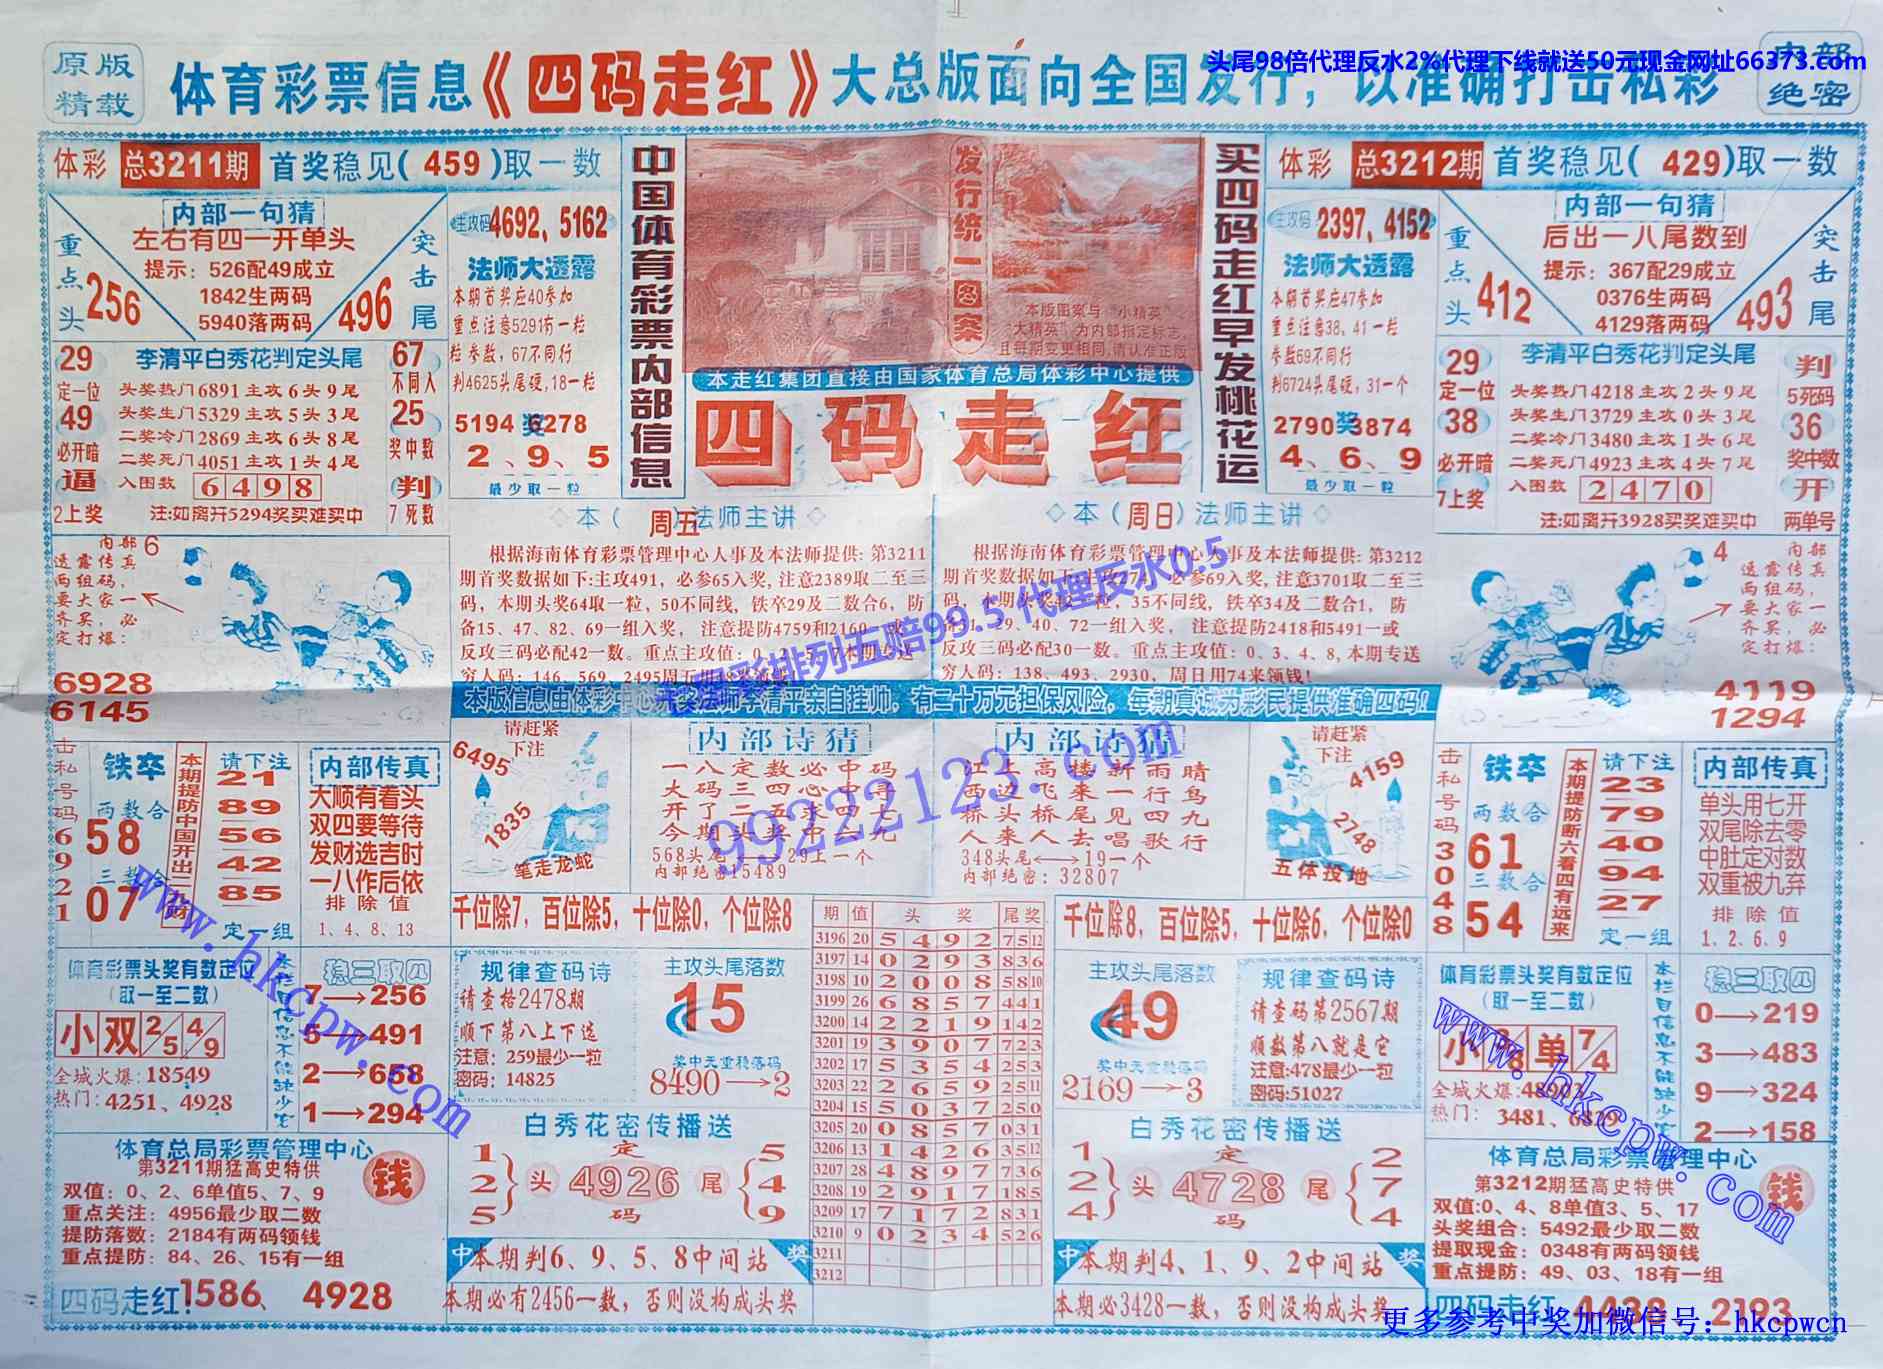 原版
精载
体育彩票信息《四码走红》大总版面向全国发行，以准确打击私彩
头尾98倍代理反水2%代理下线就送50元现金网址66373.com
内部
绝密
体彩 总3211期 首奖稳见(459)取一数
内部一句猜
左右有四一开单头
提示：526配49成立
1842生两码
5940落两码
重点头
256
突击尾
496
主攻码 4692、5162
法师大透露
本期首奖应40参加
重点注意5291有一粒
粒参数，67不同行
判4625头尾硬,18一粒
5194奖6278
2、9、5
最少取一粒
29
定一位
49
必开暗
逼
2上奖
李清平白秀花判定头尾
头奖热门6891主攻6头9尾
头奖生门5329主攻5头3尾
二奖冷门2869主攻6头8尾
二奖死门4051主攻1头4尾
入围数 6498
注:如离开5294奖买难买中
67
不同入
25
奖中数
判
7死数
中国体育彩票内部信息
发行统一图案
本版图案与“小精英”
“大精英”为内部指定标志，
且每期变更相同,请认准正版
本走红集团直接由国家体育总局体彩中心提供
四码走红
买四码走红早发桃花运
体彩 总3212期 首奖稳见(429)取一数
主攻码 2397、4152
法师大透露
本期首奖应47参加
重点注意38、41一粒
参数69不同行
判6724头尾硬，31一个
2790奖3874
4、6、9
最少取一粒
内部一句猜
后出一八尾数到
提示：367配29成立
0376生两码
4129落两码
重点头
412
突击尾
493
29
定一位
38
必开暗
7上奖
李清平白秀花判定头尾
头奖热门4218主攻2头9尾
头奖生门3729主攻0头3尾
二奖冷门3480主攻1头6尾
二奖死门4923主攻4头7尾
入围数 2470
注:如离开3928买奖难买中
判
5死码
36
奖中数
开
两单号
内部
透露传真
两组码，
要大家一
齐买，必
定打爆：
6
6928
6145
本（周五）法师主讲
根据海南体育彩票管理中心人事及本法师提供：第3211
期首奖数据如下:主攻491，必参65入奖，注意2389取二至三
码，本期头奖64取一粒，50不同线，铁卒29及二数合6，防
备15、47、82、69一组入奖， 注意提防4759和2160一
反攻三码必配42一数。重点主攻值：0、
本期专送
穷人码：146、569、2495周五用
本（周日）法师主讲
根据海南体育彩票管理中心人事及本法师提供：第3212
期首奖数据如下:主攻274，必参69入奖，注意3701取二至三
码，本期头奖42一粒，35不同线，铁卒34及二数合1，防
29、40、72一组入奖， 注意提防2418和5491一或
反攻三码必配30一数。重点主攻值：0、3、4、8,本期专送
穷人码：138、493、2930，周日用74来领钱!
内部
透露传真
两组码，
要大家一
齐买，必
定打爆：
4
4119
1294
排列五赔99.5 代理反水0.5
99222123.com
本版信息由体彩中心头奖法师李清平亲自挂帅，有二十万元担保风险，每期真诚为彩民提供准确四码!
击私号码6921
铁卒
两数合
58
三数合
07
请下注
21
89
56
42
85
定一组
内部传真
大顺有着头
双四要等待
发财选吉时
一八作后依
排除值
1、4、8、13
请赶紧
下注
6495
1835
笔走龙蛇
内部诗猜
一八定数必中码
大码三四心中寻
开了二五求四七
今期头奖中六九
568头尾⟷29上一个
内部绝密15489
内部诗猜
江上高楼新雨晴
西边飞来一行鸟
桥头桥尾见四九
人来人去唱歌行
348头尾⟷19一个
内部绝密：32807
请赶紧
下注
4159
2748
五体投地
击私号码3048
铁卒
两数合
61
三数合
54
本期提防断六看四有远来
请下注
23
79
40
94
27
定一组
内部传真
单头用七开
双尾除去零
中肚定对数
双重被九弃
排除值
1、2、6、9
千位除7，百位除5，十位除0，个位除8
千位除8，百位除5，十位除6，个位除0
体育彩票头奖有数定位
（取一至二数）
小双 2/5 4/9
全城火爆:18549
热门：4251、4928
稳三取四
7→256
5→491
2→658
1→294
规律查码诗
请查格2478期
顺下第八上下选
注意：259最少一粒
密码：14825
主攻头尾落数
15
奖中天重稳落码
8490→2
期 值 头奖 尾奖
3196 20 5 4 9 2 7 5 12
3197 14 0 2 9 3 8 3 6
3198 10 2 0 0 8 5 8 10
3199 26 6 8 5 7 4 4 1
3200 14 2 2 1 9 1 4 2
3201 19 3 9 0 7 7 2 3
3202 17 5 3 5 4 2 5 3
3203 22 2 6 5 9 2 5 11
3204 15 5 0 3 7 2 5 0
3205 20 0 8 5 7 0 3 1
3206 13 1 4 2 6 3 5 12
3207 28 4 8 9 7 7 3 6
3208 19 2 9 1 7 1 8 5
3209 17 7 1 7 2 8 3 1
3210 9 0 2 3 4 5 2 6
3211
3212
主攻头尾落数
49
奖中天重稳落码
2169→3
规律查码诗
请查码第2567期
顺数第八就是它
注意:478最少一粒
密码:51027
体育彩票头奖有数定位
（取一至二数）
单 7/4
全城火爆
热门：3481、6829
本栏目信息不能缺少它
稳三取四
0→219
3→483
9→324
2→158
体育总局彩票管理中心
第3211期猛高史特供
钱
双值：0、2、6单值5、7、9
重点关注：4956最少取二数
提防落数：2184有两码领钱
重点提防：84、26、15有一组
四码走红!1586、4928
白秀花密传播送
1 2 5 头 定 4926 码 尾 5 4 9
中 本期判6、9、5、8中间站 奖
本期必有2456一数，否则没构成头奖
白秀花密传播送
1 2 4 头 定 4728 码 尾 2 7 4
中 本期判4、1、9、2中间站 奖
本期必3428一数，否则没构成头奖
体育总局彩票管理中心
第3212期猛高史特供
钱
双值:0、4、8单值3、5、17
头奖组合：5492最少取二数
提取现金：0348有两码领钱
重点提防：49、03、18有一组
四码走红 4438 2193
www.hkcpw.com
www.hkcpw.com
更多参考中奖加微信号：hkcpwcn